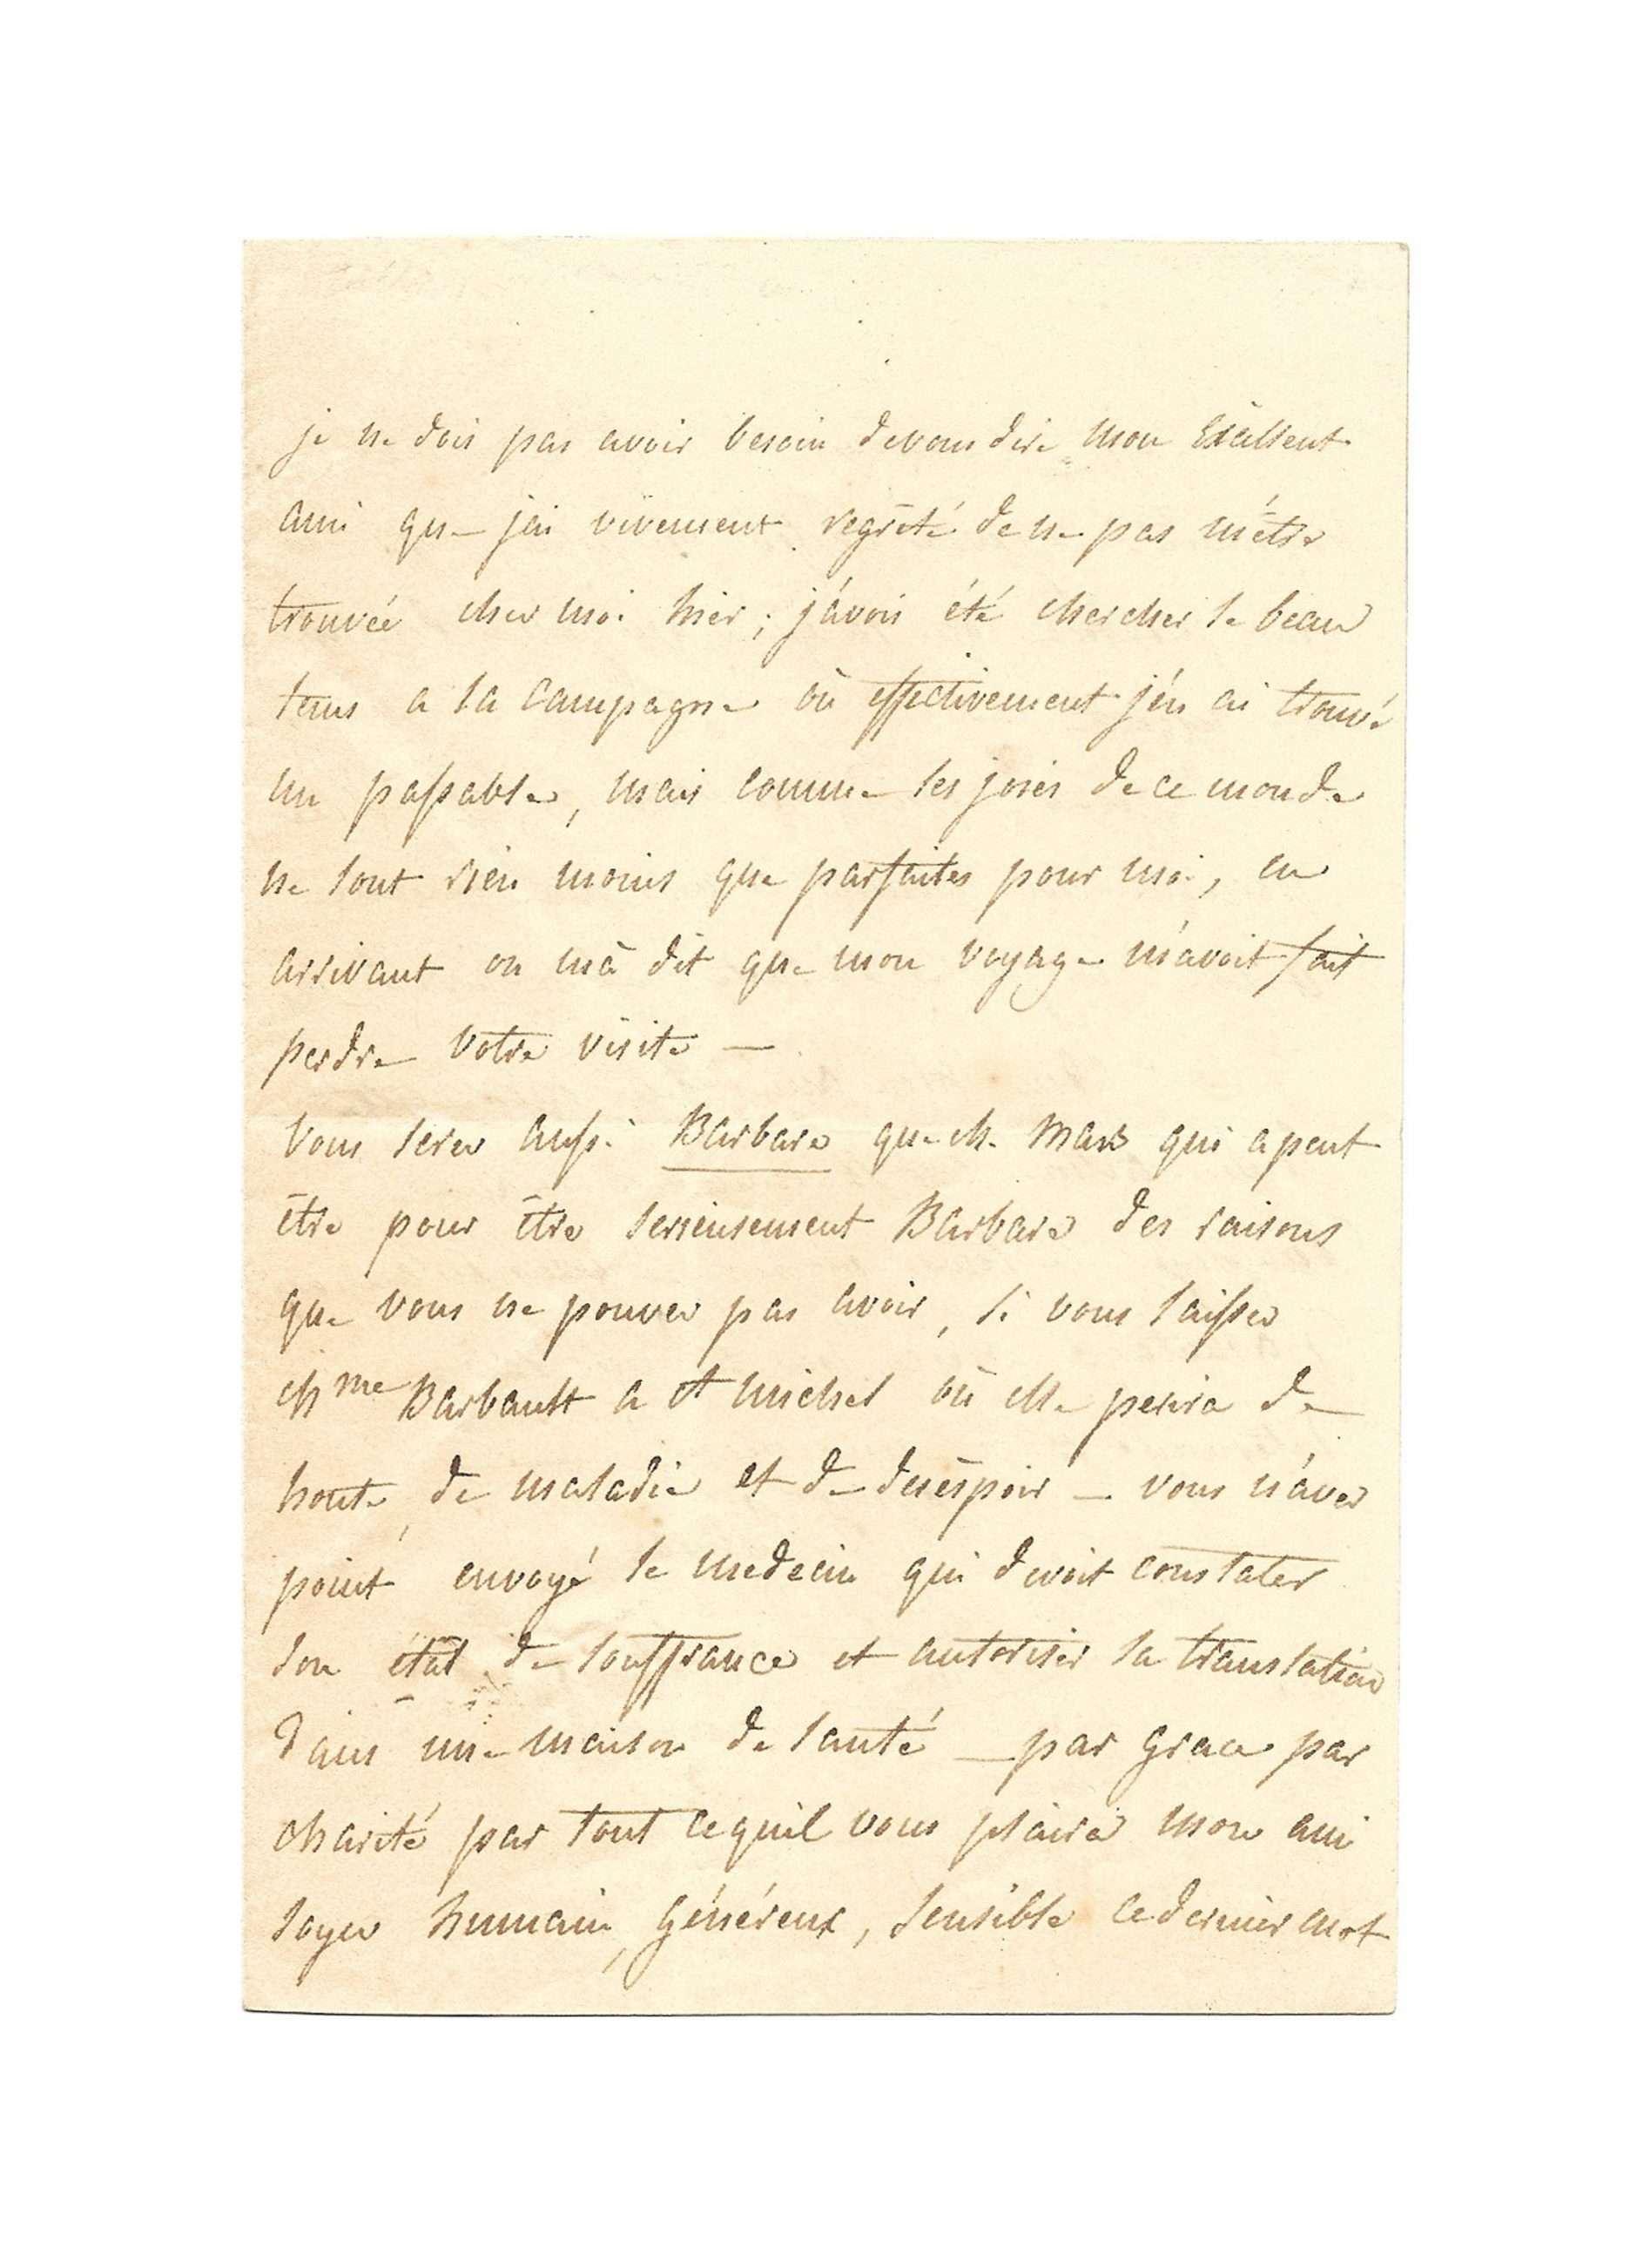 je ne dois pas avoir besoin devous dire mon Exellent
ami que jai vivement regrété de ne pas m'être
trouvée chez moi hier ; j'avois été chercher le beau
tems a la campagne où effectivement j'en ai trouvé
un passable, mais comme les joies de ce monde
ne sont rien moins que parfaites pour moi, en
arrivant on m'a dit que mon voyage m'avoit fait
perdre votre visite —
vous serez aussi Barbare que M. Max qui a peut
être pour être serieusement Barbare des raisons
que vous ne pouvez pas avoir, si vous laissez
Mme Barbault a St Michel où elle perira de
honte, de maladie et de desespoir — vous n'avez
point envoyé le medecin qui devoit constater
son état de souffrance et autoriser sa translation
dans une maison de santé — par grace par
charité par tout cequil vous plaira mon ami
soyez humain, généreux, sensible ce dernier mot